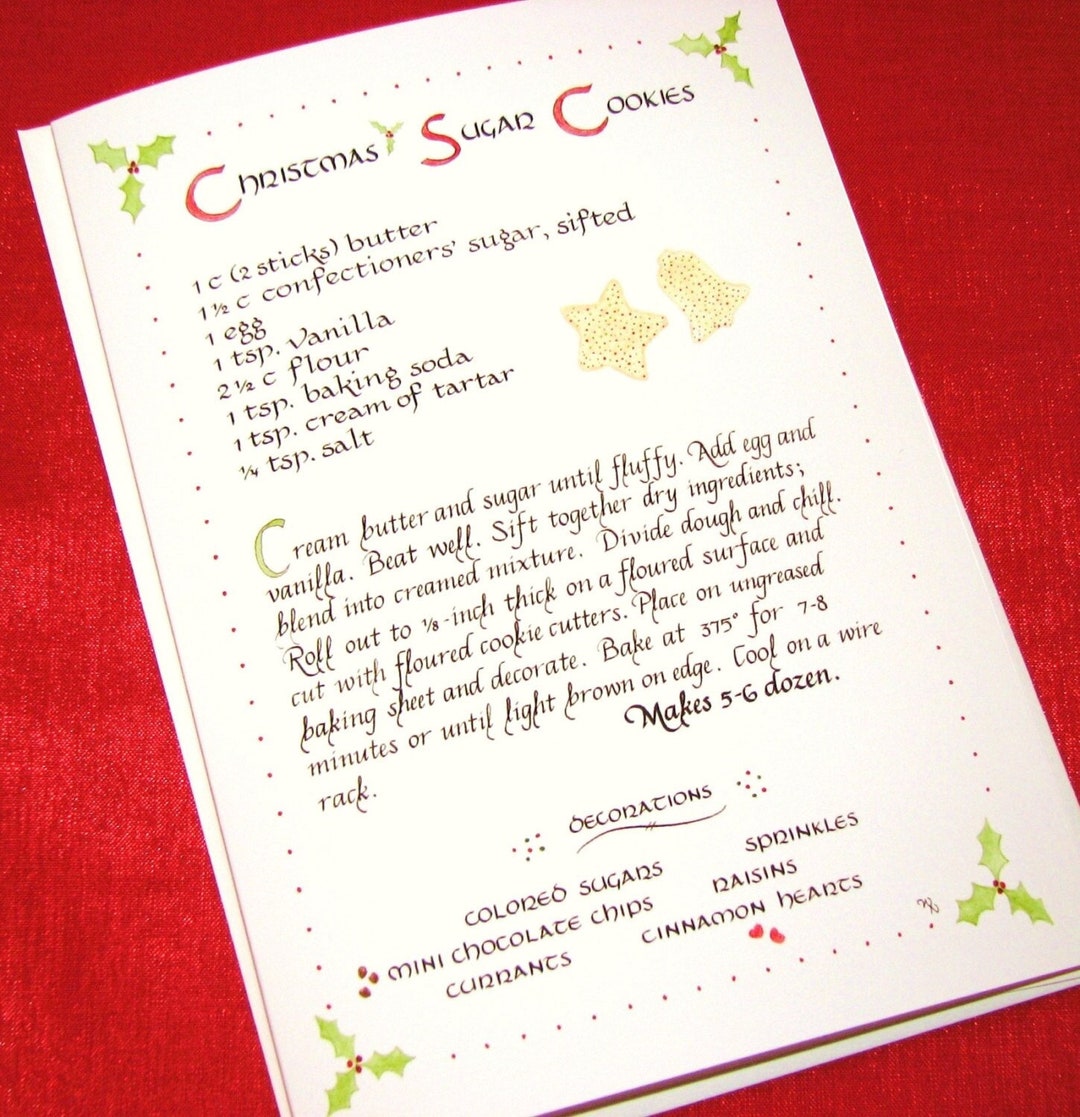 Christmas Sugar Cookies
1 c (2 sticks) butter
1 ½ c confectioners' sugar, sifted
1 egg
1 tsp. vanilla
2 ½ c flour
1 tsp. baking soda
1 tsp. cream of tartar
¼ tsp. salt
Cream butter and sugar until fluffy. Add egg and
vanilla. Beat well. Sift together dry ingredients;
blend into creamed mixture. Divide dough and chill.
Roll out to ⅛-inch thick on a floured surface and
cut with floured cookie cutters. Place on ungreased
baking sheet and decorate. Bake at 375° for 7-8
minutes or until light brown on edge. Cool on a wire
rack.
Makes 5-6 dozen.
Decorations
colored sugars sprinkles
mini chocolate chips raisins
currants cinnamon hearts